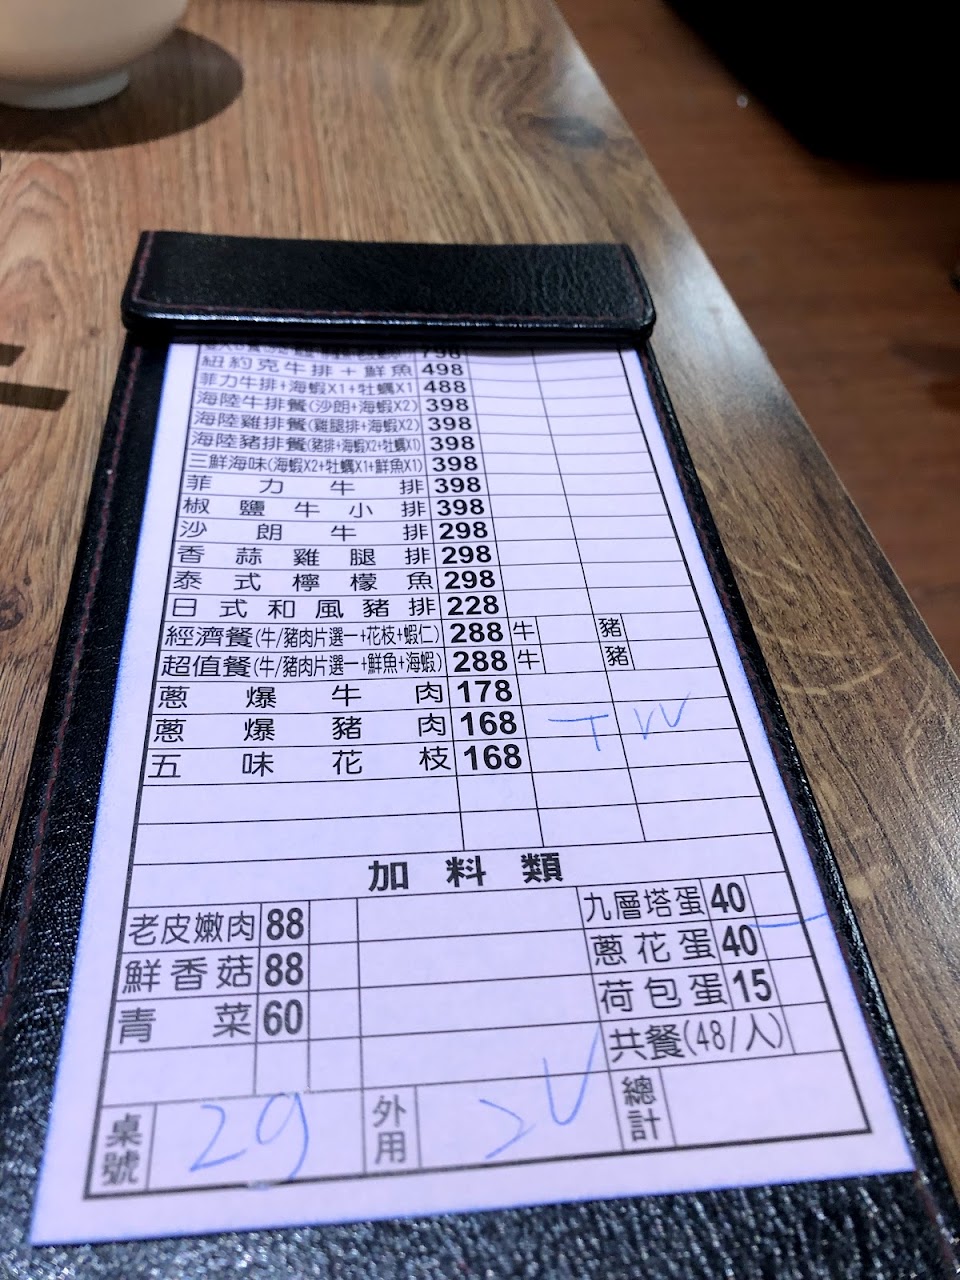 798
紐約克牛排+鮮魚 498
菲力牛排+海蝦X1+牡蠣X1 488
海陸牛排餐(沙朗+海蝦X2) 398
海陸雞排餐(雞腿排+海蝦X2) 398
海陸豬排餐(豬排+海蝦X2+牡蠣X1) 398
三鮮海味(海蝦X2+牡蠣X1+鮮魚X1) 398
菲力牛排 398
椒鹽牛小排 398
沙朗牛排 298
香蒜雞腿排 298
泰式檸檬魚 298
日式和風豬排 228
經濟餐(牛/豬肉片選一+花枝+蝦仁) 288 牛 豬
超值餐(牛/豬肉片選一+鮮魚+海蝦) 288 牛 豬
蔥爆牛肉 178
蔥爆豬肉 168
五味花枝 168
加料類
老皮嫩肉 88 九層塔蛋 40
鮮香菇 88 蔥花蛋 40
青菜 60 荷包蛋 15
共餐(48/人)
桌號 29 外用 總計